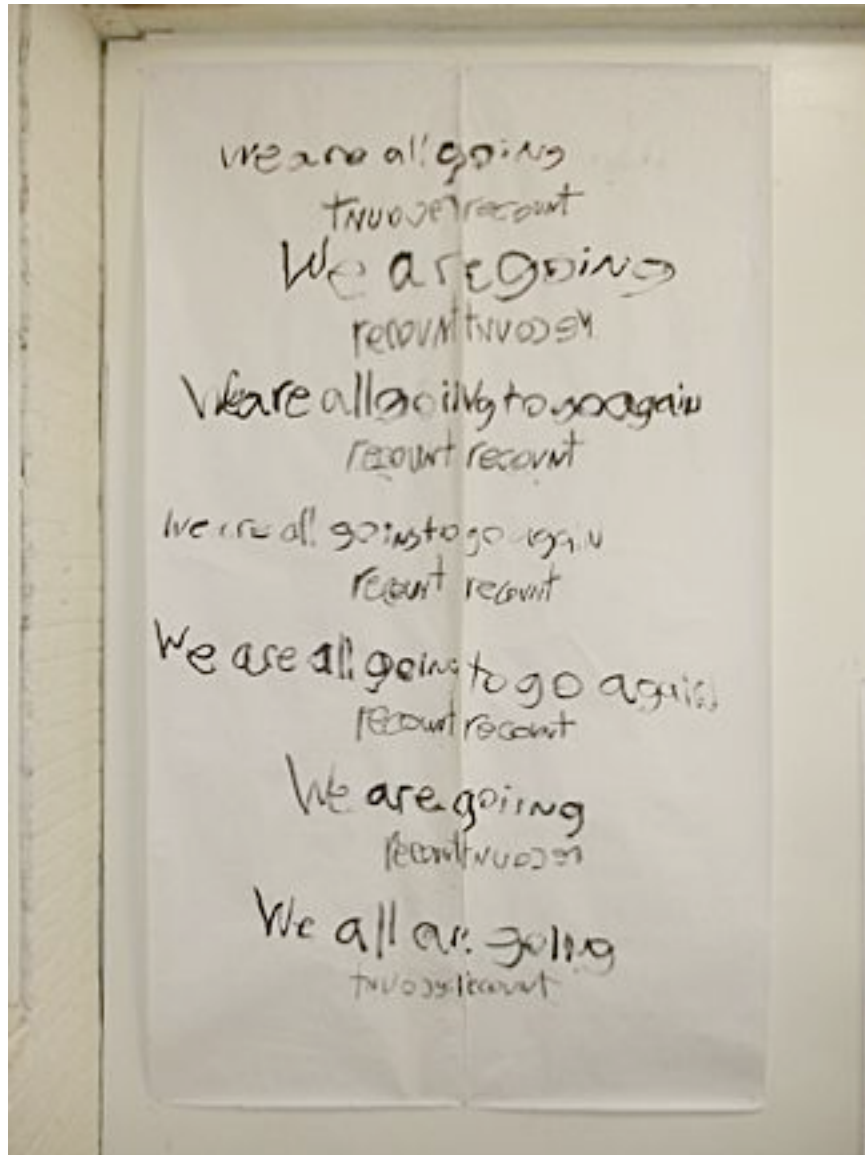 We are all going
tnuocer recount
We are going
recount tnuocer
We are all going to go again
recount recount
We are all going to go again
recount recount
We are all going to go again
recount recount
We are going
recount tnuocer
We all are going
tnuocer recount